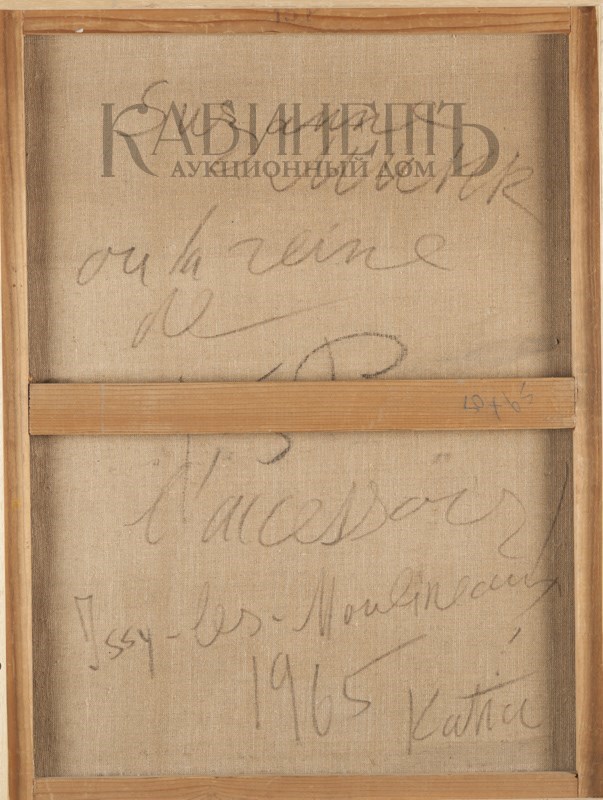 КАБИНЕТЪ
АУКЦИОННЫЙ ДОМ
Suzanne
ou la reine
de
l'accessoire
Issy-les-Moulineaux
1965
Katia